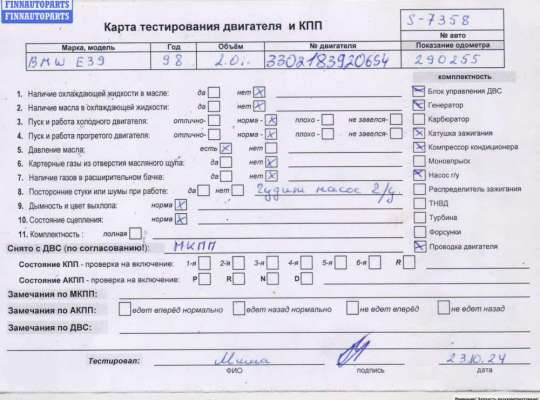 FINNAUTOPARTS
FINNAUTOPARTS
FINNAUTOPARTS
Карта тестирования двигателя и КПП
S-7358
№ авто
Марка, модель Год Объём № двигателя Показание одометра
BMW E39 98 2.0i 3302183920654 290255
комплектность
1. Наличие охлаждающей жидкости в масле: да нет x
2. Наличие масла в охлаждающей жидкости: да нет x
3. Пуск и работа холодного двигателя: отлично- норма - x плохо - не завелся-
4. Пуск и работа прогретого двигателя: отлично- норма - x плохо - не завелся-
5. Давление масла: есть x нет
6. Картерные газы из отверстия масляного щупа: да нет x
7. Наличие газов в расширительном бачке: да нет x
8. Посторонние стуки или шумы при работе: да нет Гудит насос г/у.
9. Дымность и цвет выхлопа: норма x
10. Состояние сцепления: норма x
11. Комплектность : полная
x Блок управления ДВС
x Генератор
Карбюратор
x Катушка зажигания
x Компрессор кондиционера
Моновпрыск
x Насос г/у
Распределитель зажигания
ТНВД
Турбина
Форсунки
x Проводка двигателя
Снято с ДВС (по согласованию!): МКПП
Состояние КПП - проверка на включение: 1-я 2-я 3-я 4-я 5-я 6-я R
Состояние АКПП - проверка на включение: P R N D
Замечания по МКПП:
Замечания по АКПП: едет вперёд нормально едет назад нормально не едет вперёд не едет назад
Замечания по ДВС:
Тестировал: Миша 23.10.24
ФИО подпись дата